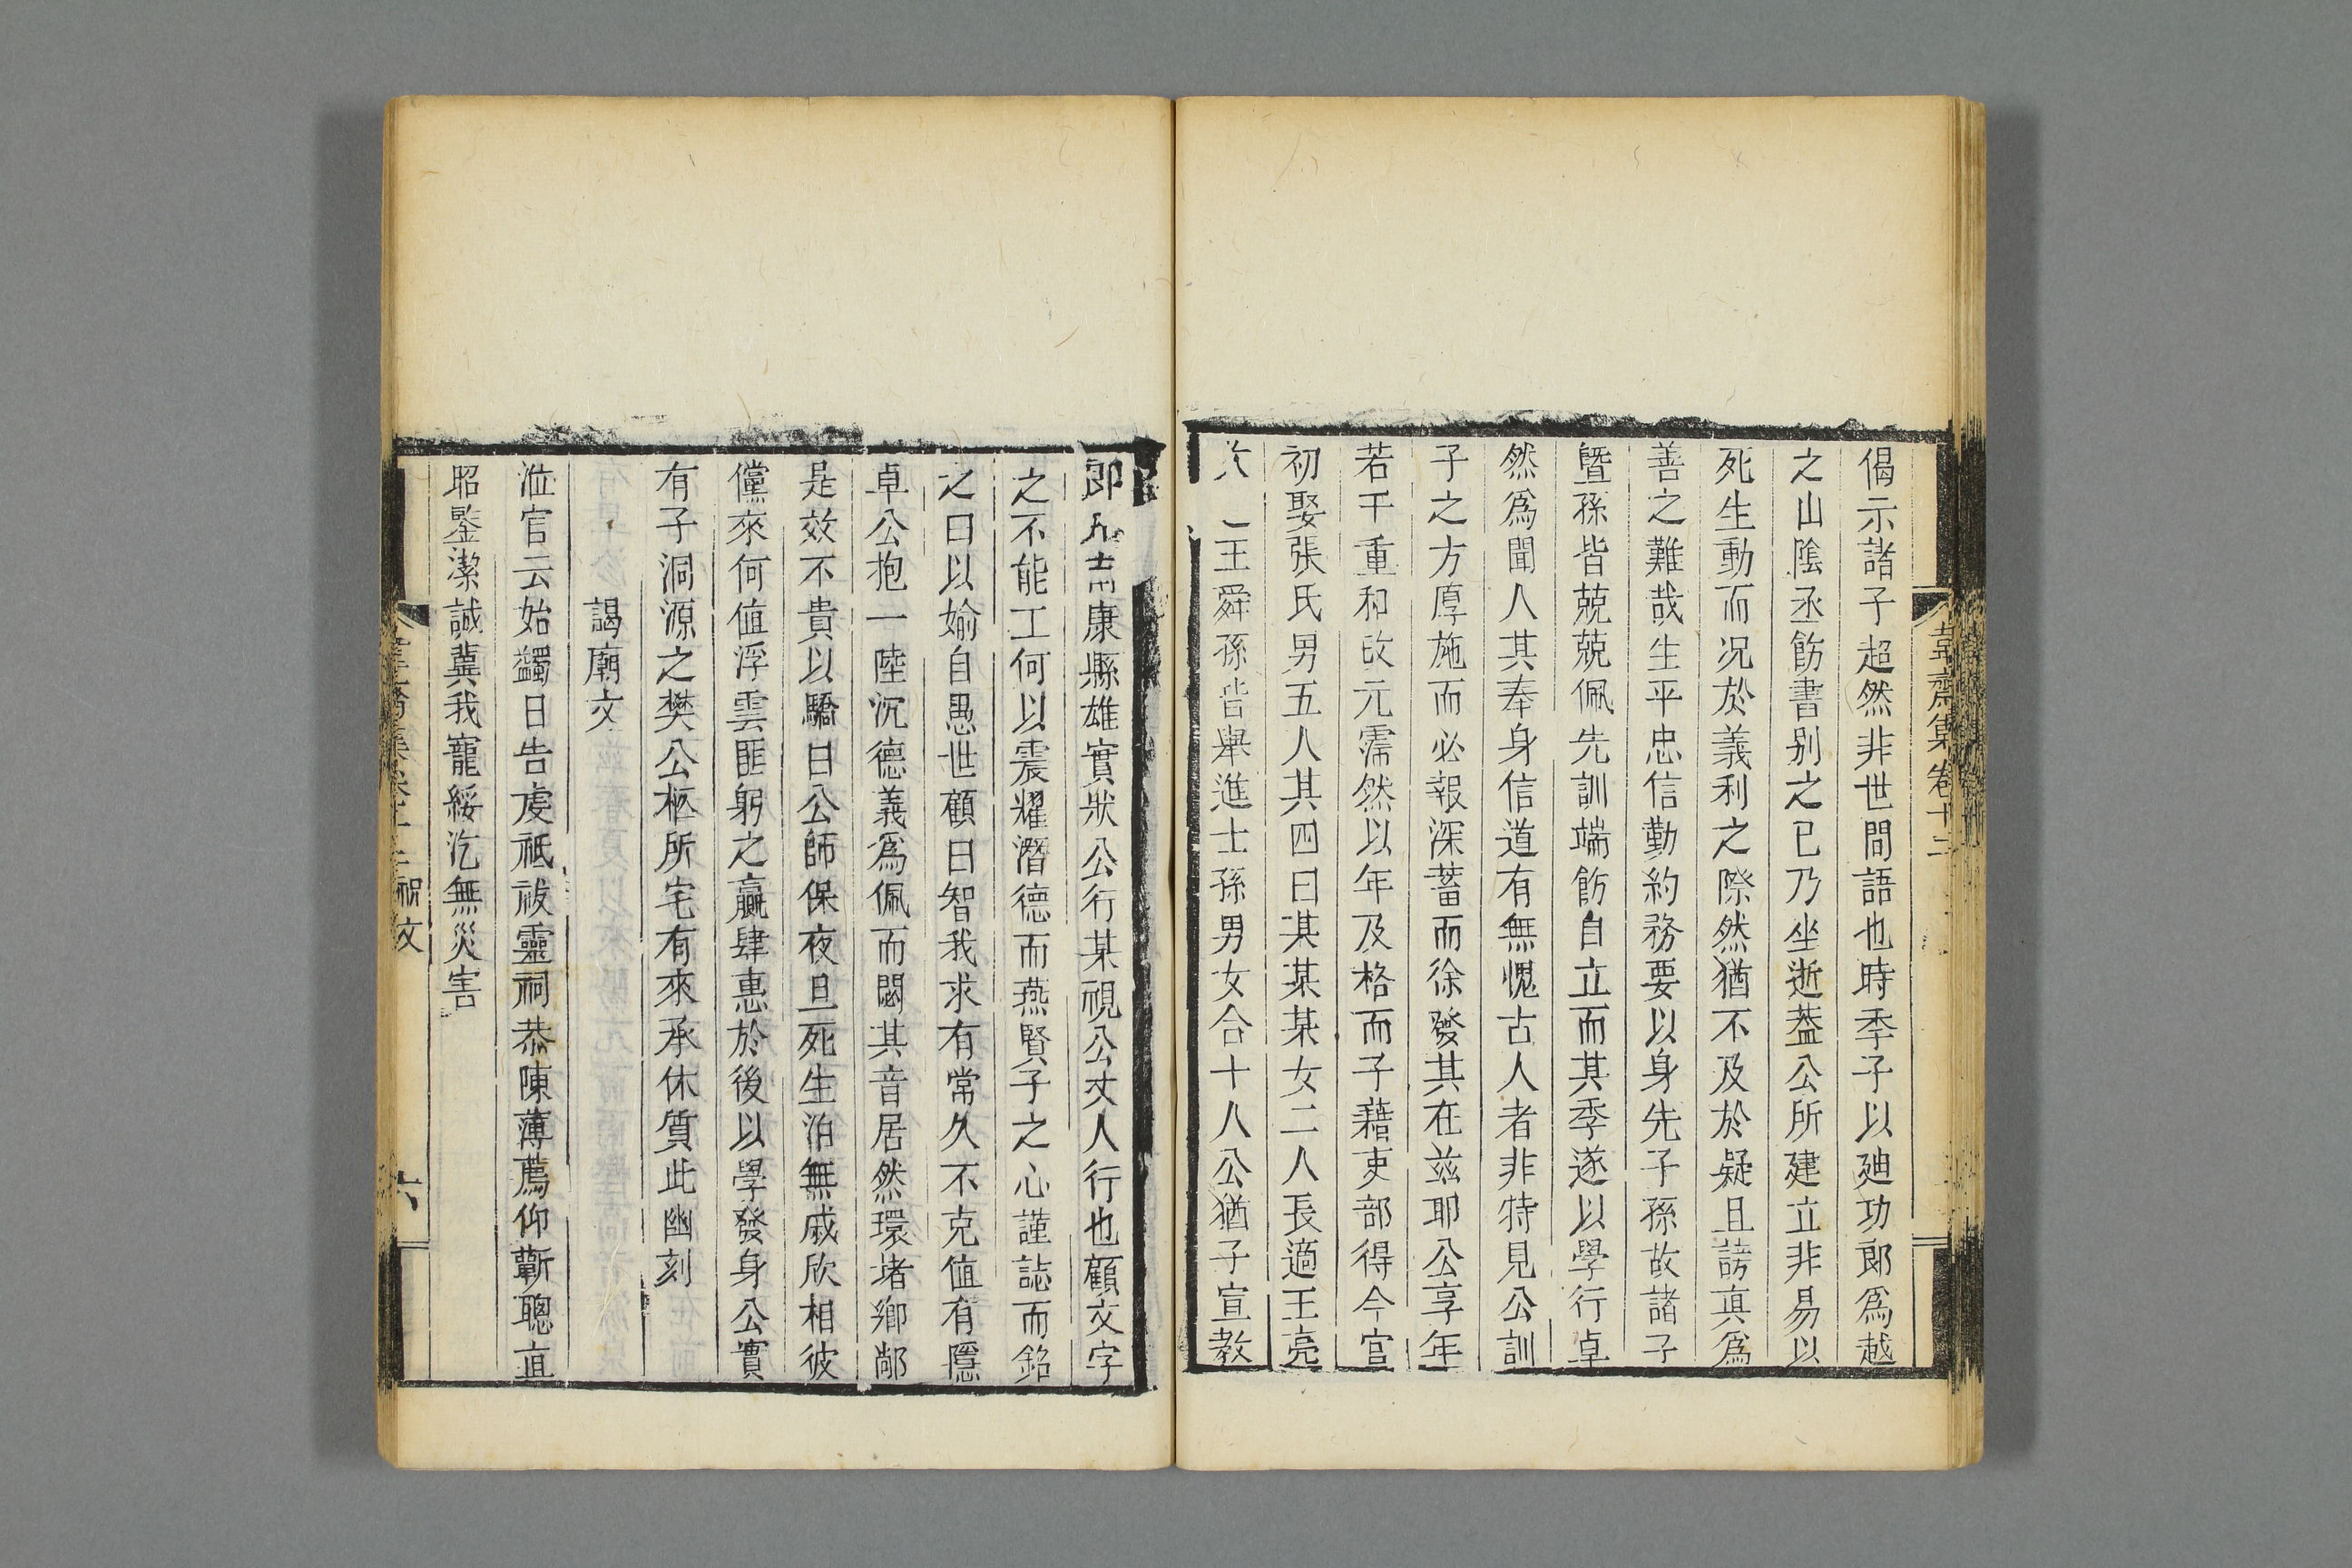 韋齋集卷十二
偈示諸子超然非世間語也時季子以廸功郎爲越
之山隂丞飭書别之已乃坐逝葢公所建立非易以
死生動而况於義利之際然猶不及於疑且謗真爲
善之難哉生平忠信勤約務要以身先子孫故諸子
曁孫皆兢兢佩先訓端飭自立而其季遂以學行卓
然爲聞人其奉身信道有無愧古人者非特見公訓
子之方厚施而必報深蓄而徐發其在兹耶公享年
若干重和改元霈然以年及格而子藉吏部得今官
初娶張氏男五人其四曰某某某女二人長適王亮
次 王舜孫皆舉進士孫男女合十八公猶子宣教
郎 康縣雄實狀公行某視公丈人行也顧文字
之不能工何以震耀潛德而燕賢子之心謹誌而銘
之曰以媮自愚世顧曰智我求有常久不克值有隱
卓公抱一陸沉德義爲佩而閟其音居然環堵鄉鄰
是效不貴以驕曰公師保夜旦死生泊無戚欣相彼
儻來何值浮雲匪躬之贏肆惠於後以學發身公實
有子洞源之樊公柩所宅有來承休質此幽刻
謁廟文
涖官云始蠲日告虔祗祓靈祠恭陳薄薦仰蘄聰直
昭鑒潔誠兾我寵綏汔無災害
祝文
六